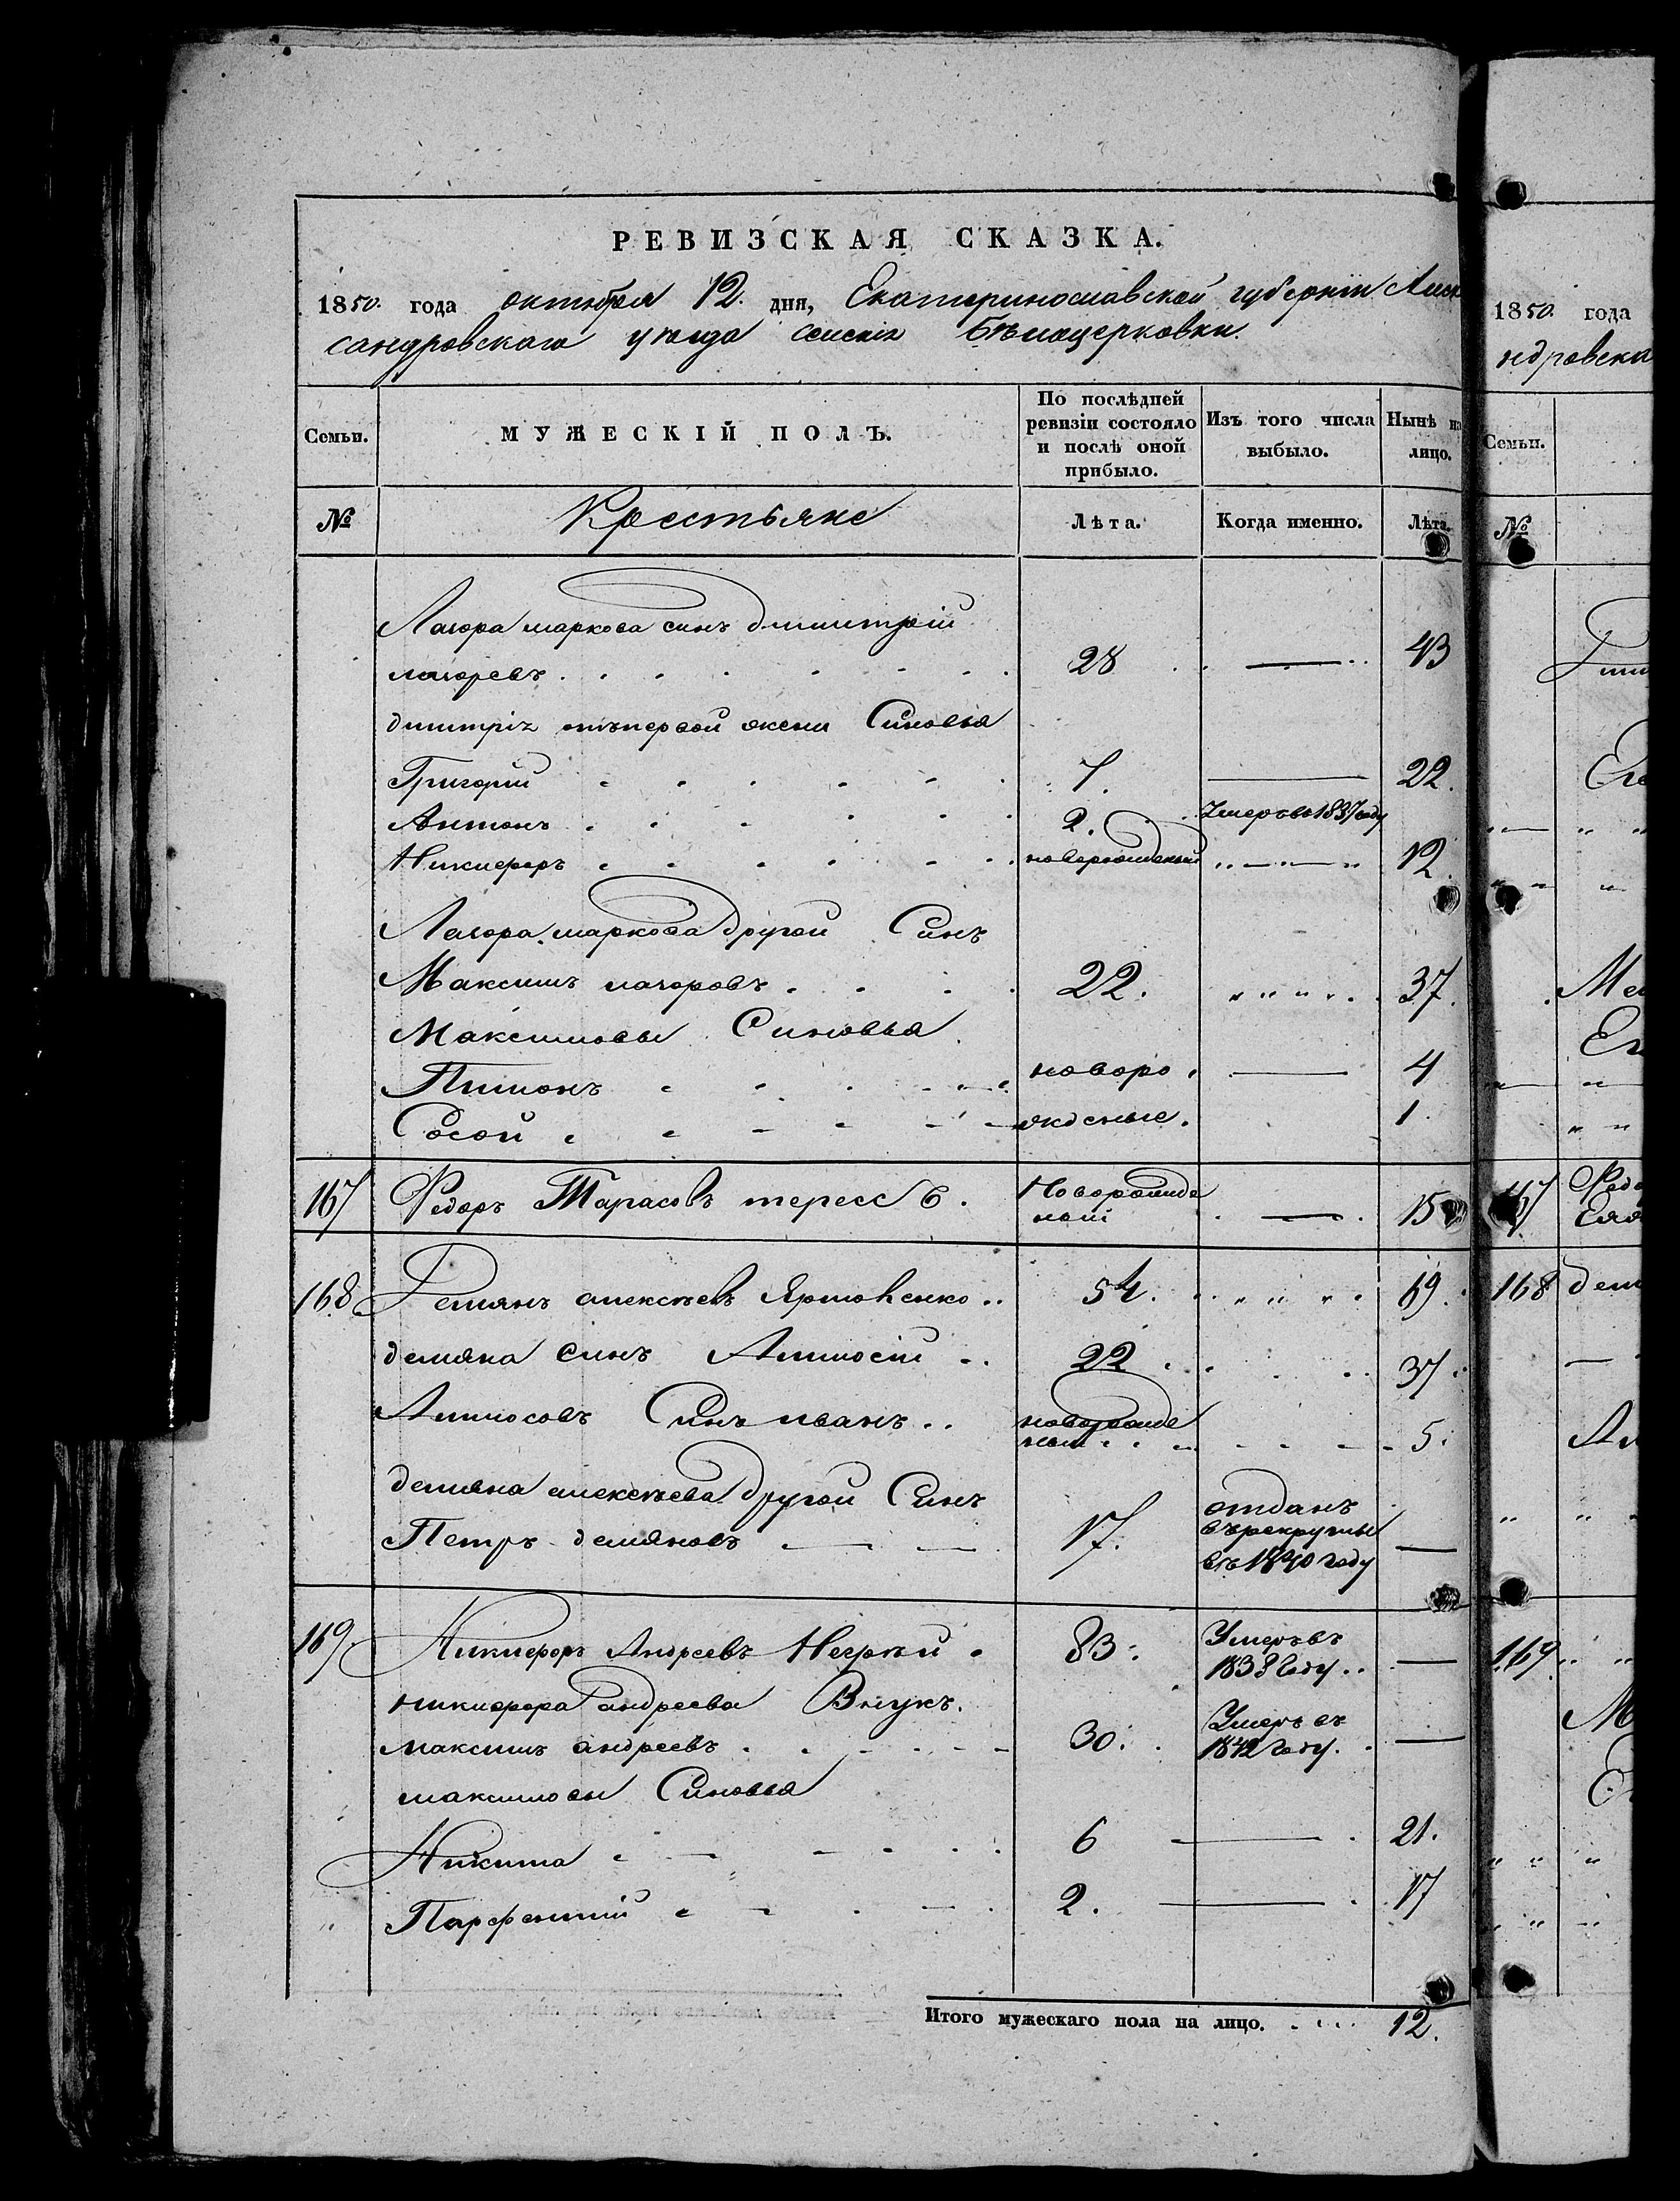 РЕВИЗСКАЯ СКАЗКА.
1850. года октября 12. дня, Екатеринославской губернiи Алек
сандровскаго уѣзда селенiя Бѣлоцерковки.
Семьи. МУЖЕСКІЙ ПОЛЪ. По послѣдней ревизіи состояло и послѣ оной прибыло. Изъ того числа выбыло. Нынѣ на лицо.
№ Крестьяне Лѣта. Когда именно. Лѣта.
маркова синъ димитрiй
28 43
димитрiя отъ первой жени Синовья
Григорiй 7. 22.
Антонъ 2. Умеръ во 1837 году
Никифоръ новорожденый 12.
маркова другой Синъ
Максимъ 22. 37.
Максимовы Синовья
Пимонъ новоро 4
Сосой жденые. 1.
167 Федоръ Тарасовъ Новорожде
ный 15
168 Демянъ алексѣевъ Ярмоленко 54. 69.
демяна синъ Аммосiй 22 37.
Аммосовъ Синъ иванъ новорожде
ный 5.
демяна алексѣева другой Синъ
Петръ демяновъ 17. отданъ
въ рекруты
въ 1840 году
169. Никифоръ Андреевъ Негрѣй 83. Умеръ въ
1838 Году
никифора андреева Внукъ.
максимъ андреевъ 30. Умеръ въ
1842 Году.
максимовы Синовья
Никита 6 21.
Парфентiй 2. 17
Итого мужескаго пола на лицо. 12.
1850. года
ндровска
Семьи.
№
167 Федо
168 дем
169